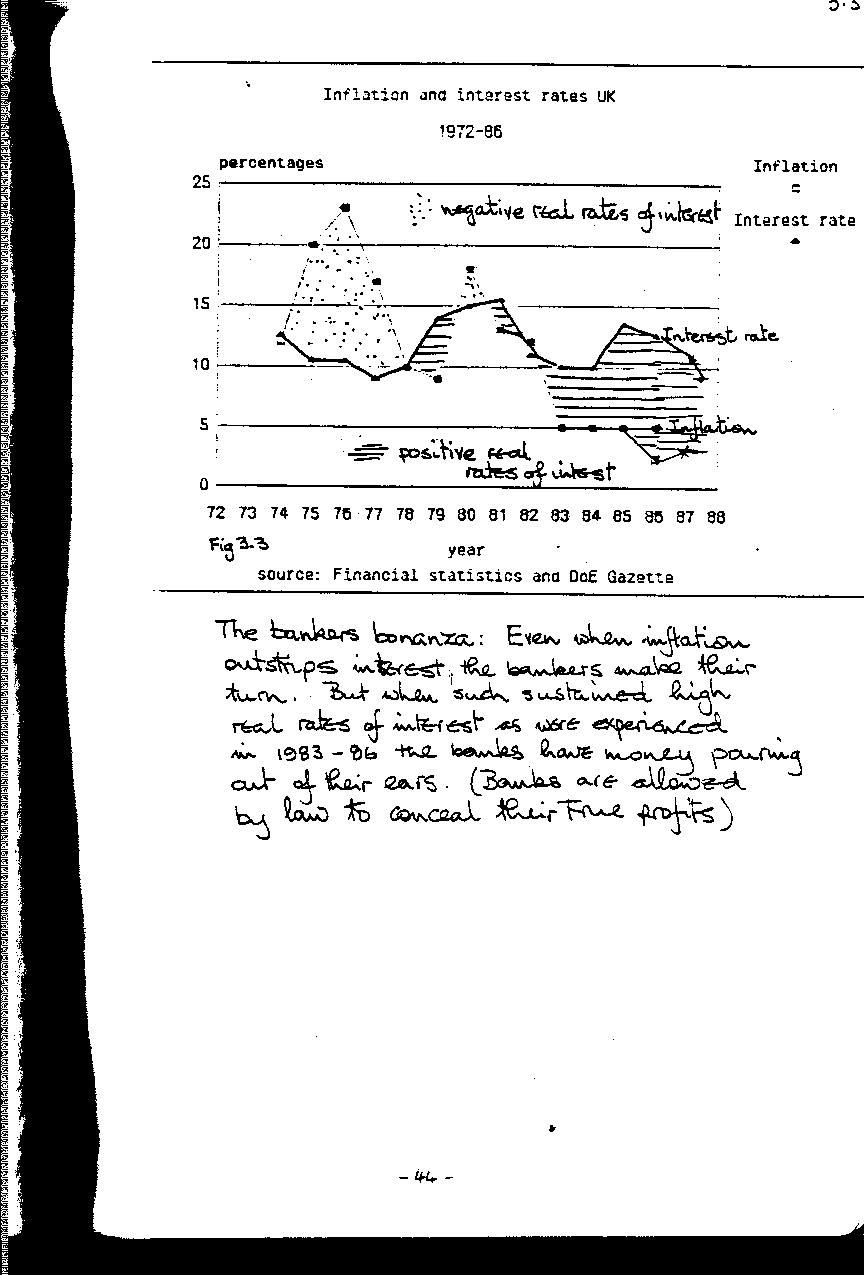 Inflation and interest rates UK
1972-86
percentages
Inflation
Interest rate
25
negative real rates of interest
20
15
Interest rate
10
5
Inflation
positive real
rates of intest
0
72 73 74 75 76 77 78 79 80 81 82 83 84 85 86 87 88
Fig 3.3
year
source: Financial statistics and DoE Gazette
The bankers bonanza: Even when inflation
outstrips interest, the bankers make their
turn. But when such sustained high
real rates of interest as were experienced
in 1983-86 the banks have money pouring
out of their ears. (Banks are allowed
by law to conceal their True profits)
- 44 -